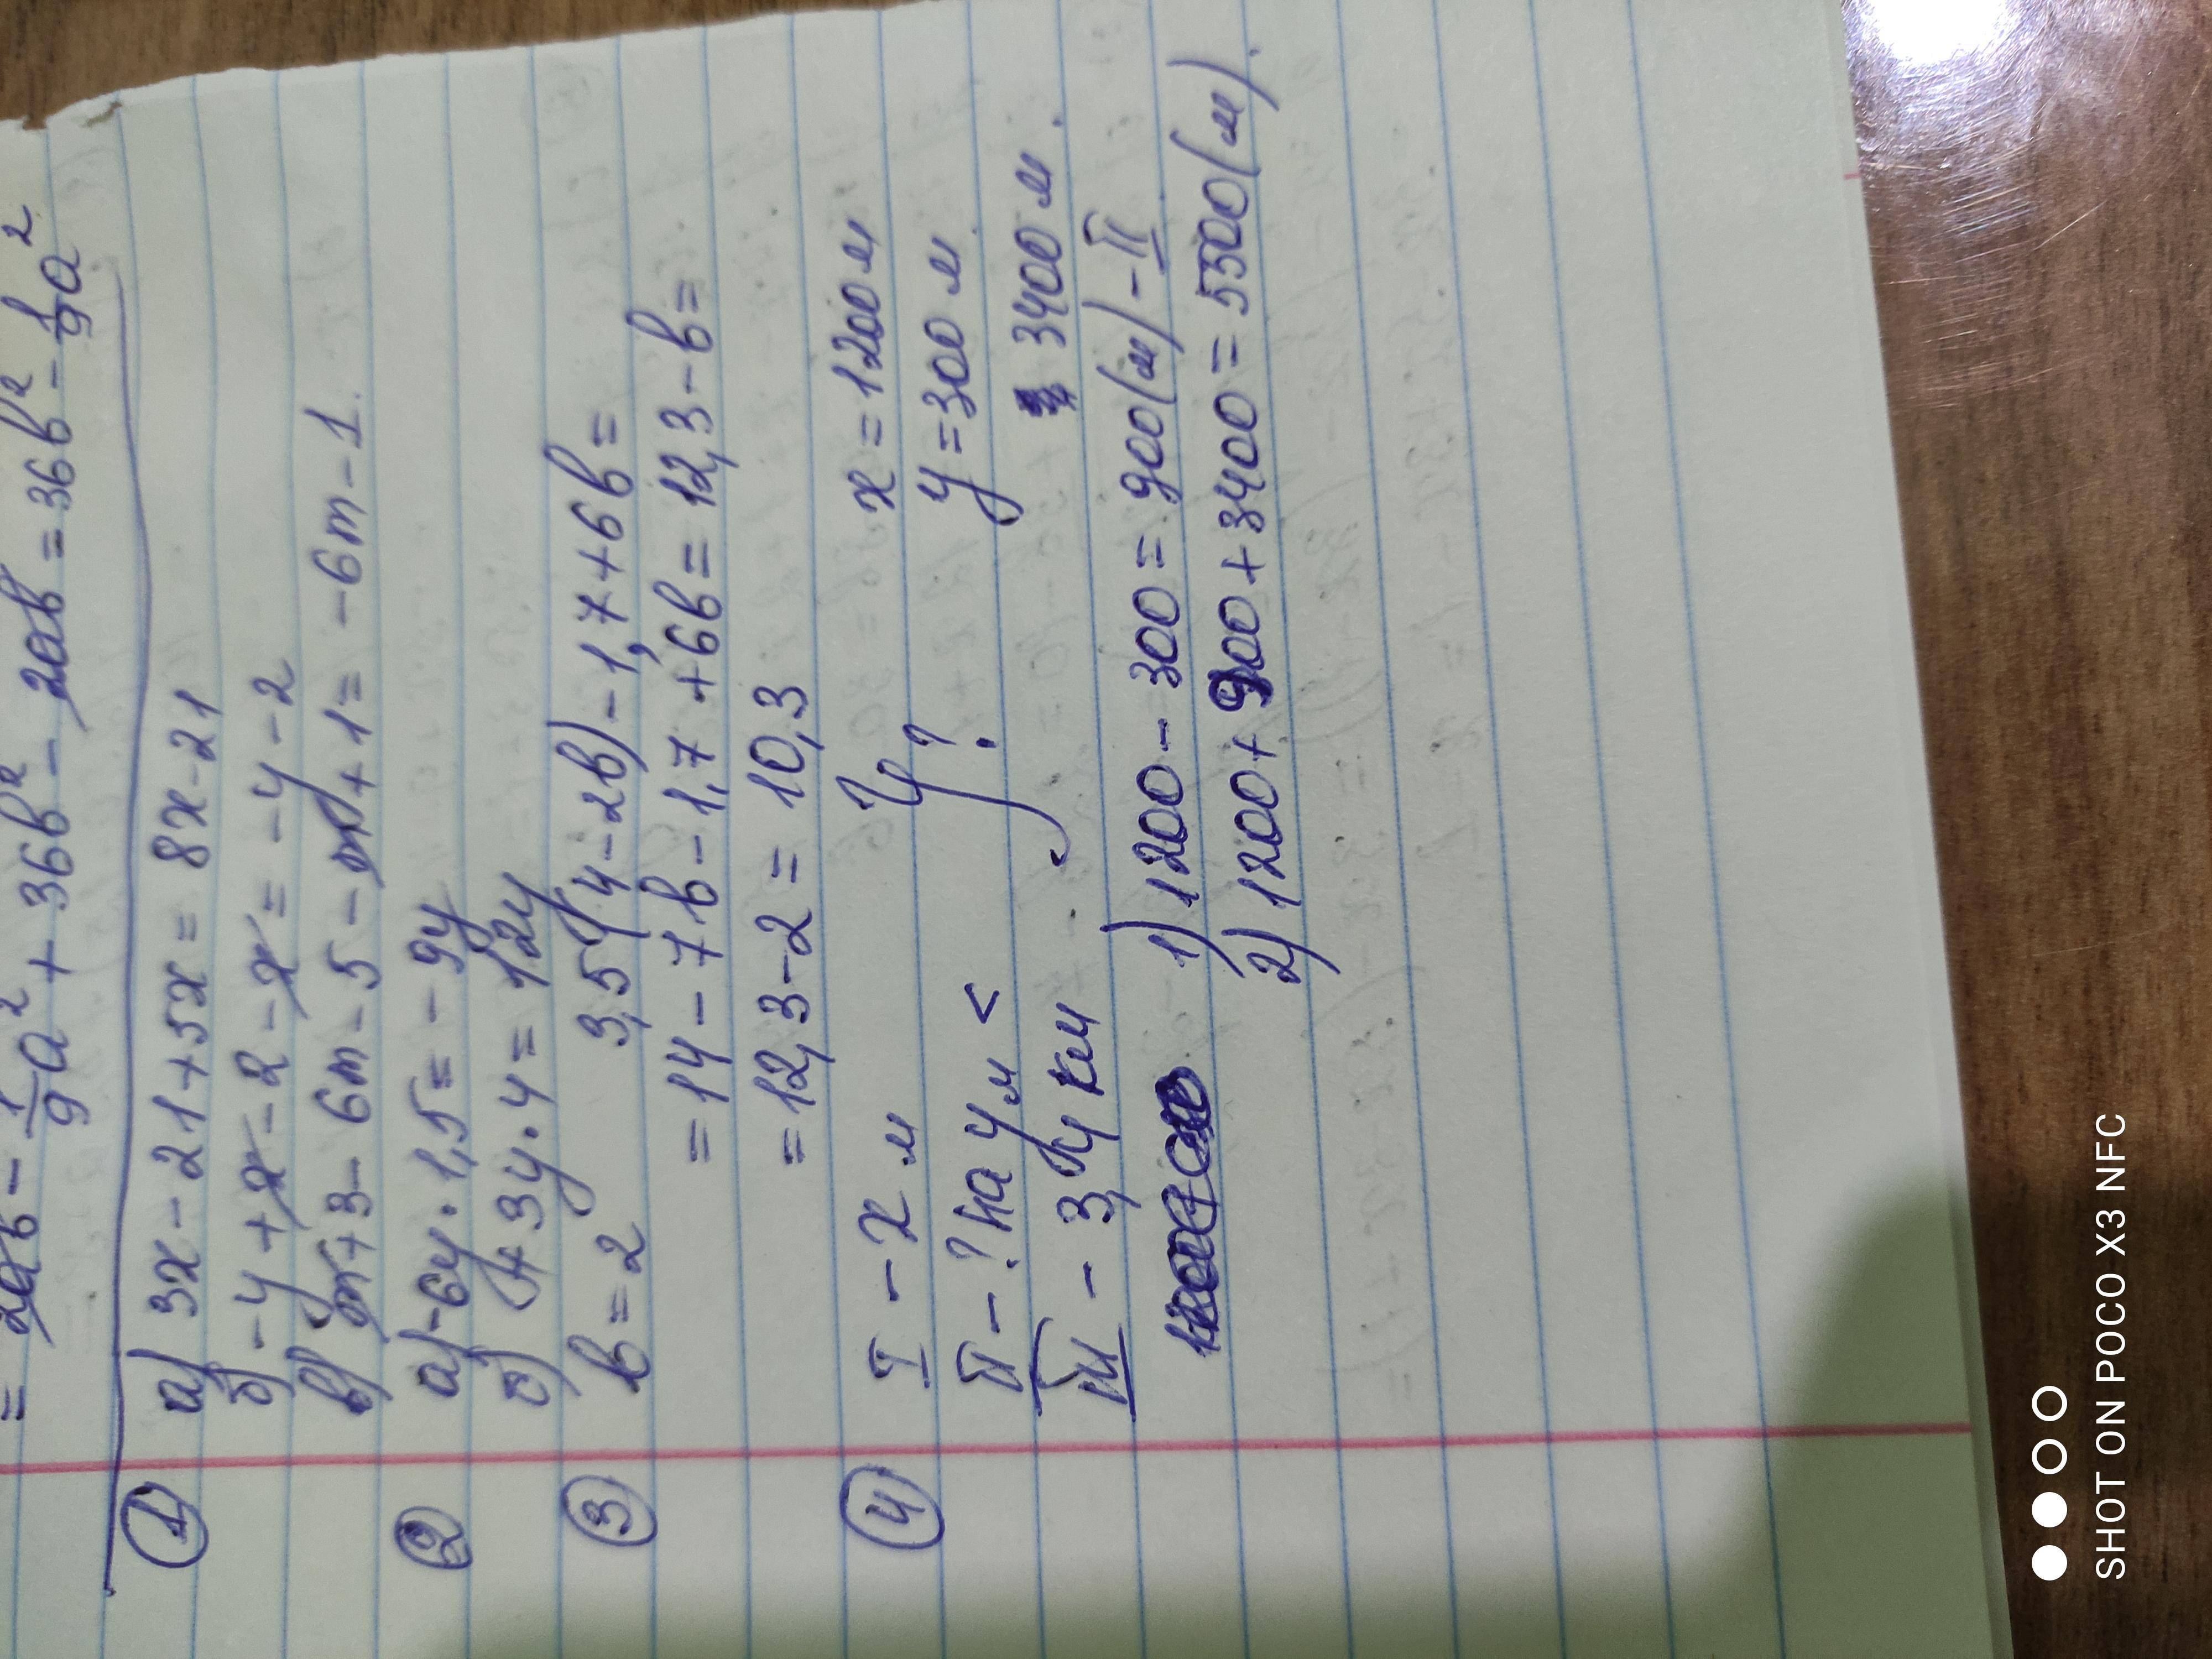 = 2ab - 1/9 a² + 36b² - 2ab = 36b² - 1/9 a²
① a) 3x - 21 + 5x = 8x - 21
б) -y + x - 2 - x = -y - 2
в) m + 3 - 6m - 5 - m + 1 = -6m - 1.
② a) -6y · 1,5 = -9y
б) +3y · 4 = 12y
③ b = 2 3,5(4 - 2b) - 1,7 + 6b =
= 14 - 7b - 1,7 + 6b = 12,3 - b =
= 12,3 - 2 = 10,3
④ I - x м x = 1200 м
II - ? на y м < ? y = 300 м
III - 3,4 км 3400 м.
1) 1200 - 300 = 900 (м) - II
2) 1200 + 900 + 3400 = 5500 (м).
SHOT ON POCO X3 NFC